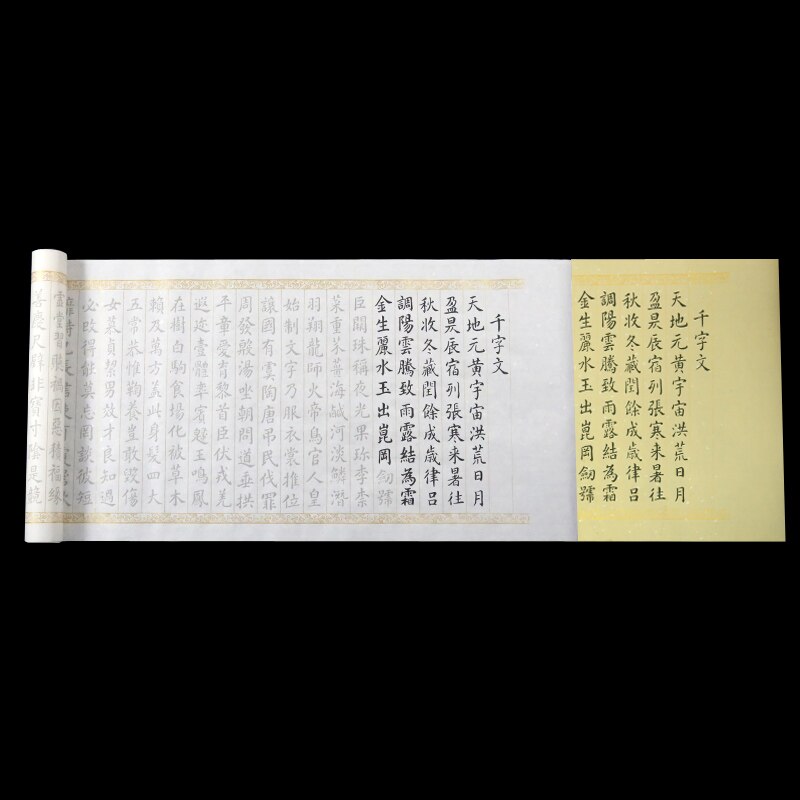 千字文
天地元黃宇宙洪荒日月
盈昃辰宿列張寒来暑往
秋收冬藏閏餘成歲律呂
調陽雲騰致雨露結為霜
金生麗水玉出崑岡劒號
千字文
天地元黃宇宙洪荒日月
盈昃辰宿列張寒来暑往
秋收冬藏閏餘成歲律呂
調陽雲騰致雨露結為霜
金生麗水玉出崑岡劒號
巨闕珠稱夜光果珎李柰
菜重芥薑海鹹河淡鱗潛
羽翔龍師火帝鳥官人皇
始制文字乃服衣裳推位
讓國有虞陶唐吊民伐罪
周發殷湯坐朝問道垂拱
平章愛育黎首臣伏戎羌
遐迩壹體率賓歸王鳴鳳
在樹白駒食場化被草木
賴及萬方蓋此身髮四大
五常恭惟鞠養豈敢毀傷
女慕貞絜男效才良知過
必改得能莫忘罔談彼短
虛堂習聽禍因惡積福緣
善慶尺璧非寶寸陰是競